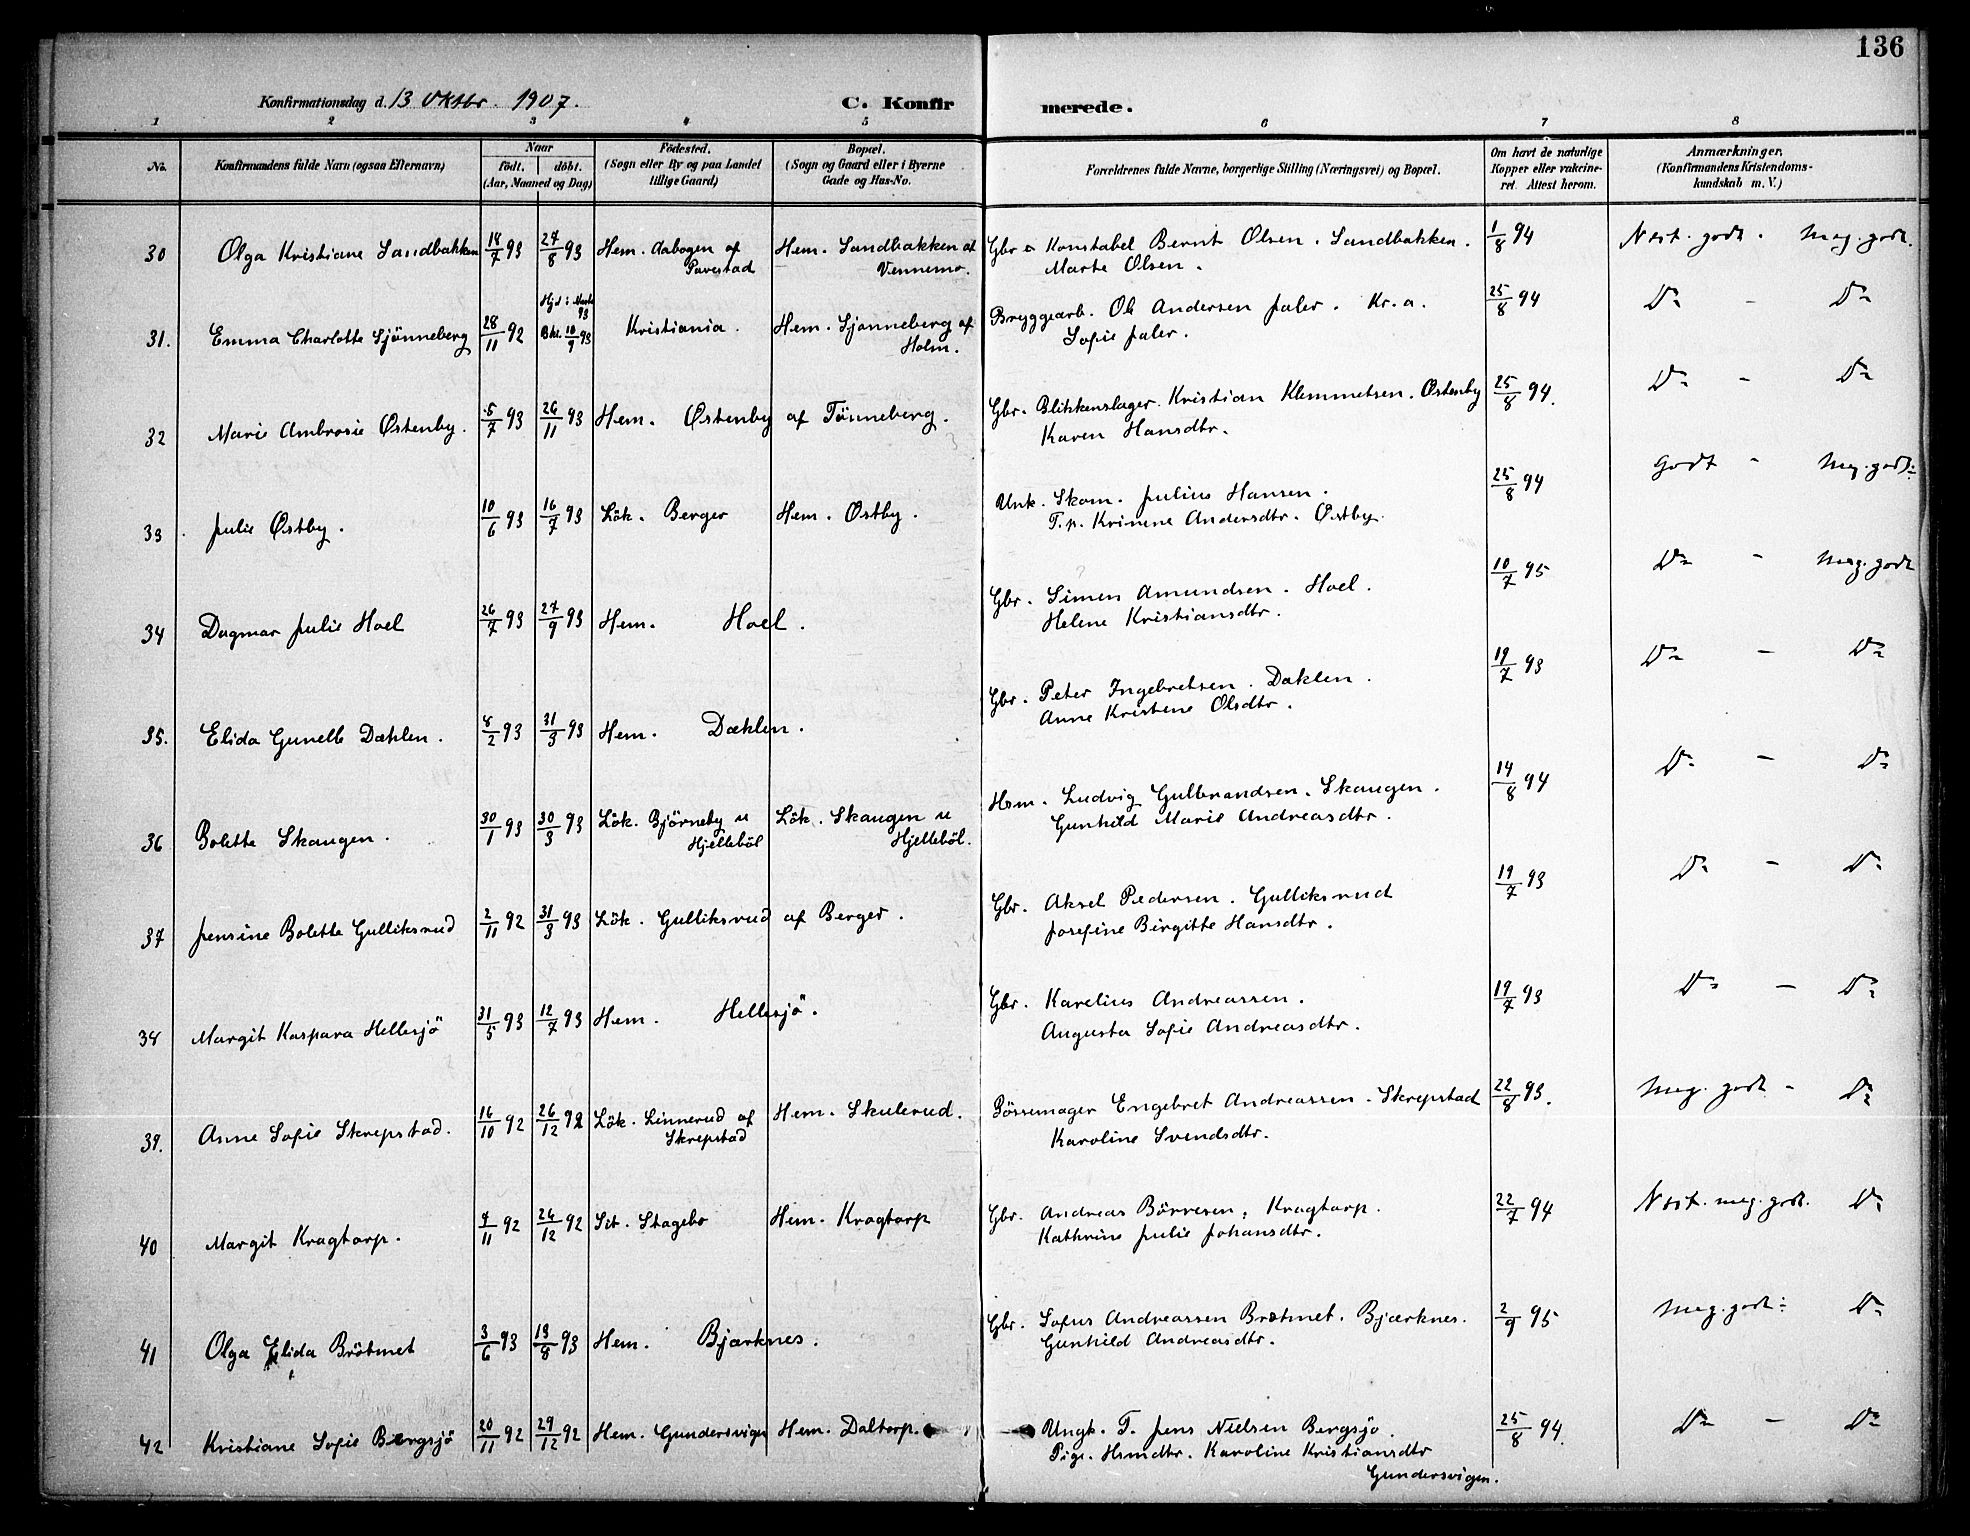 136
Konfirmationsdag d. 13 Oktbr. 1907.
C. Konfir merede.
1 2 3 4 5 6 7 8
No. Konfirmandens fulde Navn (ogsaa Efternavn) Naar født. døbt. (Aar, Maaned og Dag) Fødested. (Sogn eller By og paa Landet tillige Gaard) Bopæl. (Sogn og Gaard eller i Byerne Gade og Hus-No. Forældrenes fulde Navne, borgerlige Stilling (Næringsvei) og Bopæl. Om havt de naturlige Kopper eller vakcineret. Attest herom. Anmærkninger, (Konfirmandens Kristendomskundskab m. V.)
30 Olga Kristiane Sandbakken 18/7 93 27/8 93 Hem. Aabogen af Hem. Sandbakken af Gbr & Konstabel Bernt Olsen. Sandbakken. 1/8 94 Nest. godt. Meg. godt.
Pavestad Vennemo. Marte Olsen.
31. Emma Charlotte Sjönneberg 28/11 92 Hjd. i 93 Bkr. 10/9 93 Kristiania. Hem. Sjonneberg af Bryggearb. Ole Andersen Jaler. Kr.a. 25/8 94 Do - Do
Holm. Sofie Jaler.
32 Marie Ambrosie Østenby. 5/7 93 26/11 93 Hem. Østenby af Tönneberg. Gbr. Blikkenslager. Kristian Klemmetsen. Østenby 25/8 94. Do - Do
Karen Hansdtr.
33. Julie Østby. 10/6 93 16/7 93 Lök. Berger Hem. Ostby. Unk. Skom. Julius Hansen. 25/8 94 Godt - Meg. godt:
T.p. Krinine Andersdtr. Østby.
34 Dagmar Julie Hoel 26/7 93 27/9 93 Hem. Hoel. Gbr. Simen Amundsen. Hoel. 10/7 95 Do - Meg. godt
Helene Kristiansdtr.
35. Elida Gunelle Dæhlen. 8/2 93 31/3 93 Hem. Dæhlen. Gbr. Peter Ingebretsen. Dæhlen. 19/7 93 Do - Do
Anne Kristine Olsdtr.
36 Bolette Skaugen. 30/1 93 30/3 93 Lök. Björneby u Lök. Skaugen u Hsm. Ludvig Gulbrandsen. Skaugen. 14/8 94 Do - Do
Hjelleböl Hjelleböl. Gunhild Marie Andreasdtr.
37 Jensine Bolette Gulliksrud 2/11 92 31/3 93 Lök. Gulliksrud af Berger. Gbr. Aksel Pedersen. Gulliksrud 19/7 93 Do - Do
Josefine Birgitte Hansdtr.
38 Margit Kaspara Hellesjö 31/5 93 12/7 93 Hem. Hellesjö. Gbr. Karelius Andreassen. 19/7 93 Do - Do
Augusta Sofie Andreasdtr.
39. Anne Sofie Skrepstad. 16/10 92 26/12 92 Lök. Linnerud af Hem. Skulerud. Pössemager Engebret Andreassen. Skrepstad 22/8 93. Meg. godt - Do
Skrepstad Karoline Svendsdtr.
40 Margit Kragtorp. 4/11 92 26/12 92 Sit. Stagebo Hem. Kragtorp Gbr. Andreas Börresen, Kragtorp. 22/7 94 Nest. meg. godt. Do
Kathrine Julie Johansdtr.
41 Olga Elida Brötmet 3/6 93 13/8 93 Hem. Bjærknes. Gbr. Sofus Andreassen Brötmet. Bjærknes. 2/9 95 Meg. godt: Do
Gunhild Andreasdtr.
42 Kristiane Sofie Bergsjö 20/11 92 29/12 92 Hem. Gundersvigen Hem. Daltorp. Ungk. T. Jens Nielsen Bergsjo. 25/8 94. Do - Do
Pige. Hsmdtr. Karoline Kristiansdtr
Gundersvigen.